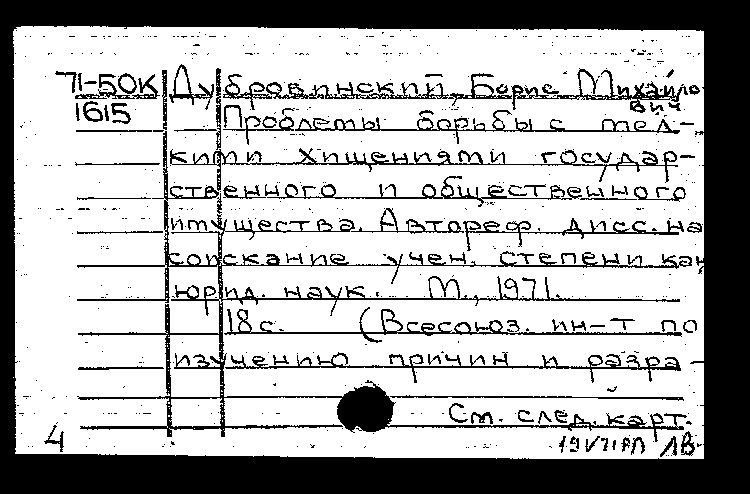 71-50К Дубровинский, Борис Михайло-
1615 вич
Проблемы борьбы с мел-
кими хищениями государ-
ственного и общественного
имущества. Автореф. дисс. на
соискание учен. степени кан
юрид. наук. М., 1971.
18 с. (Всесоюз. ин-т по
изучению причин и разра-
См. след. карт.
4 19 V 71 ЛВ